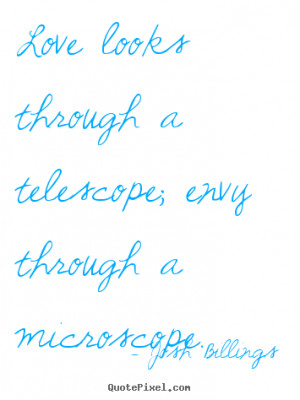 Love looks
through a
telescope; envy
through a
microscope.
- Josh Billings
QuotePixel.com